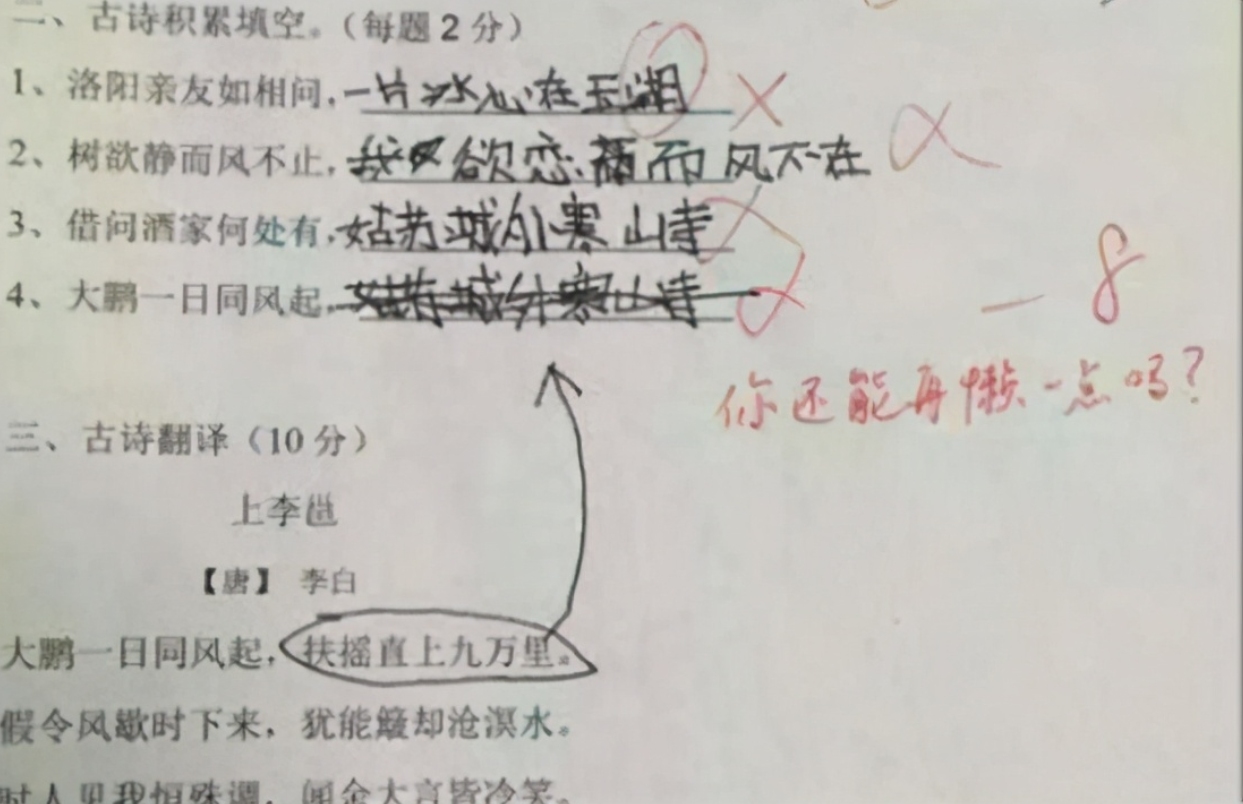 二、古诗积累填空。（每题2分）
1、洛阳亲友如相问，一片冰心在玉湖
2、树欲静而风不止，我又欲恋 而风不在
3、借问酒家何处有，姑苏城外寒山寺
4、大鹏一日同风起，姑苏城外寒山寺
-8
你还能再懒一点吗？
三、古诗翻译（10分）
上李邕
【唐】 李白
大鹏一日同风起，扶摇直上九万里。
假令风歇时下来，犹能簸却沧溟水。
时人见我恒殊调，闻余大言皆冷笑。